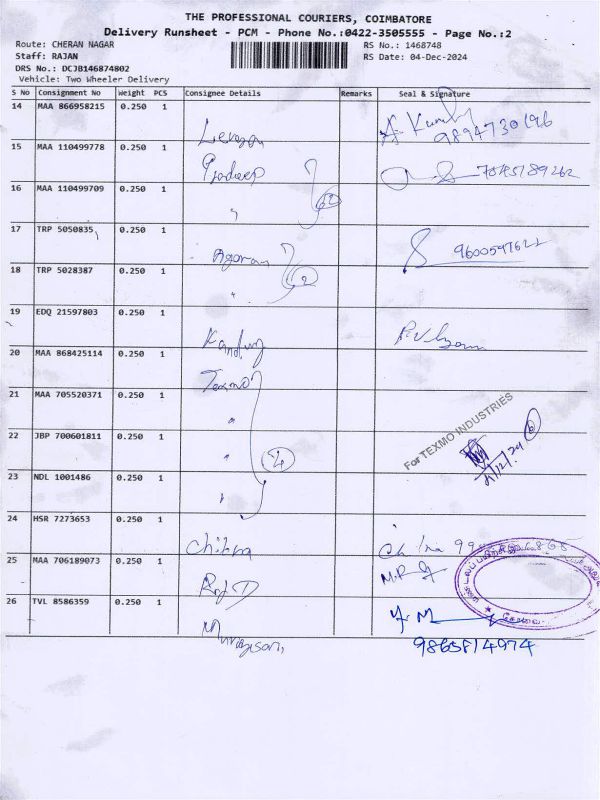 THE PROFESSIONAL COURIERS, COIMBATORE
Delivery Runsheet - PCM - Phone No.:0422-3505555 - Page No.:2
Route: CHERAN NAGAR
RS No.: 1468748
Staff: RAJAN
RS Date: 04-Dec-2024
DRS No.: DCJB146874802
Vehicle: Two Wheeler Delivery
S No Consignment No Weight PCS Consignee Details Remarks Seal & Signature
14 MAA 866958215 0.250 1
9894730196
15 MAA 110499778 0.250 1 Pradeep
16 MAA 110499709 0.250 1 " 2
17 TRP 5050835 0.250 1
18 TRP 5028387 0.250 1 " 2
19 EDQ 21597803 0.250 1
20 MAA 868425114 0.250 1 Texmo
21 MAA 705520371 0.250 1 "
For TEXMO INDUSTRIES
22 JBP 700601811 0.250 1 " 4
23 NDL 1001486 0.250 1 "
24 HSR 7273653 0.250 1
Chitra
25 MAA 706189073 0.250 1
26 TVL 8586359 0.250 1
Murugesan,
9865814974